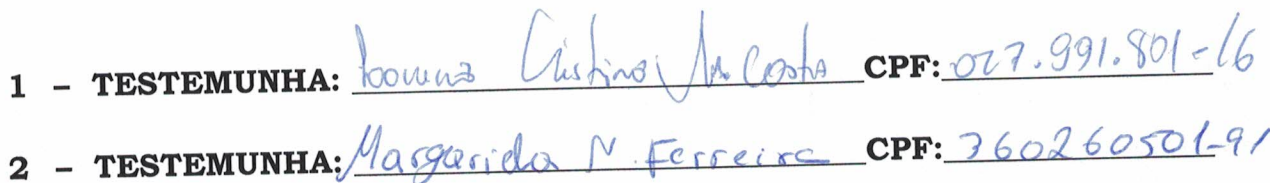 1 - TESTEMUNHA: Cristina da Costa CPF: 027.991.801-16
2 - TESTEMUNHA: Margarida N. Ferreira CPF: 360260501-91